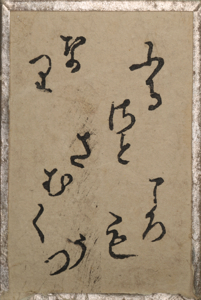 ふる
さと
さむく
ころ
も
うつ
なり